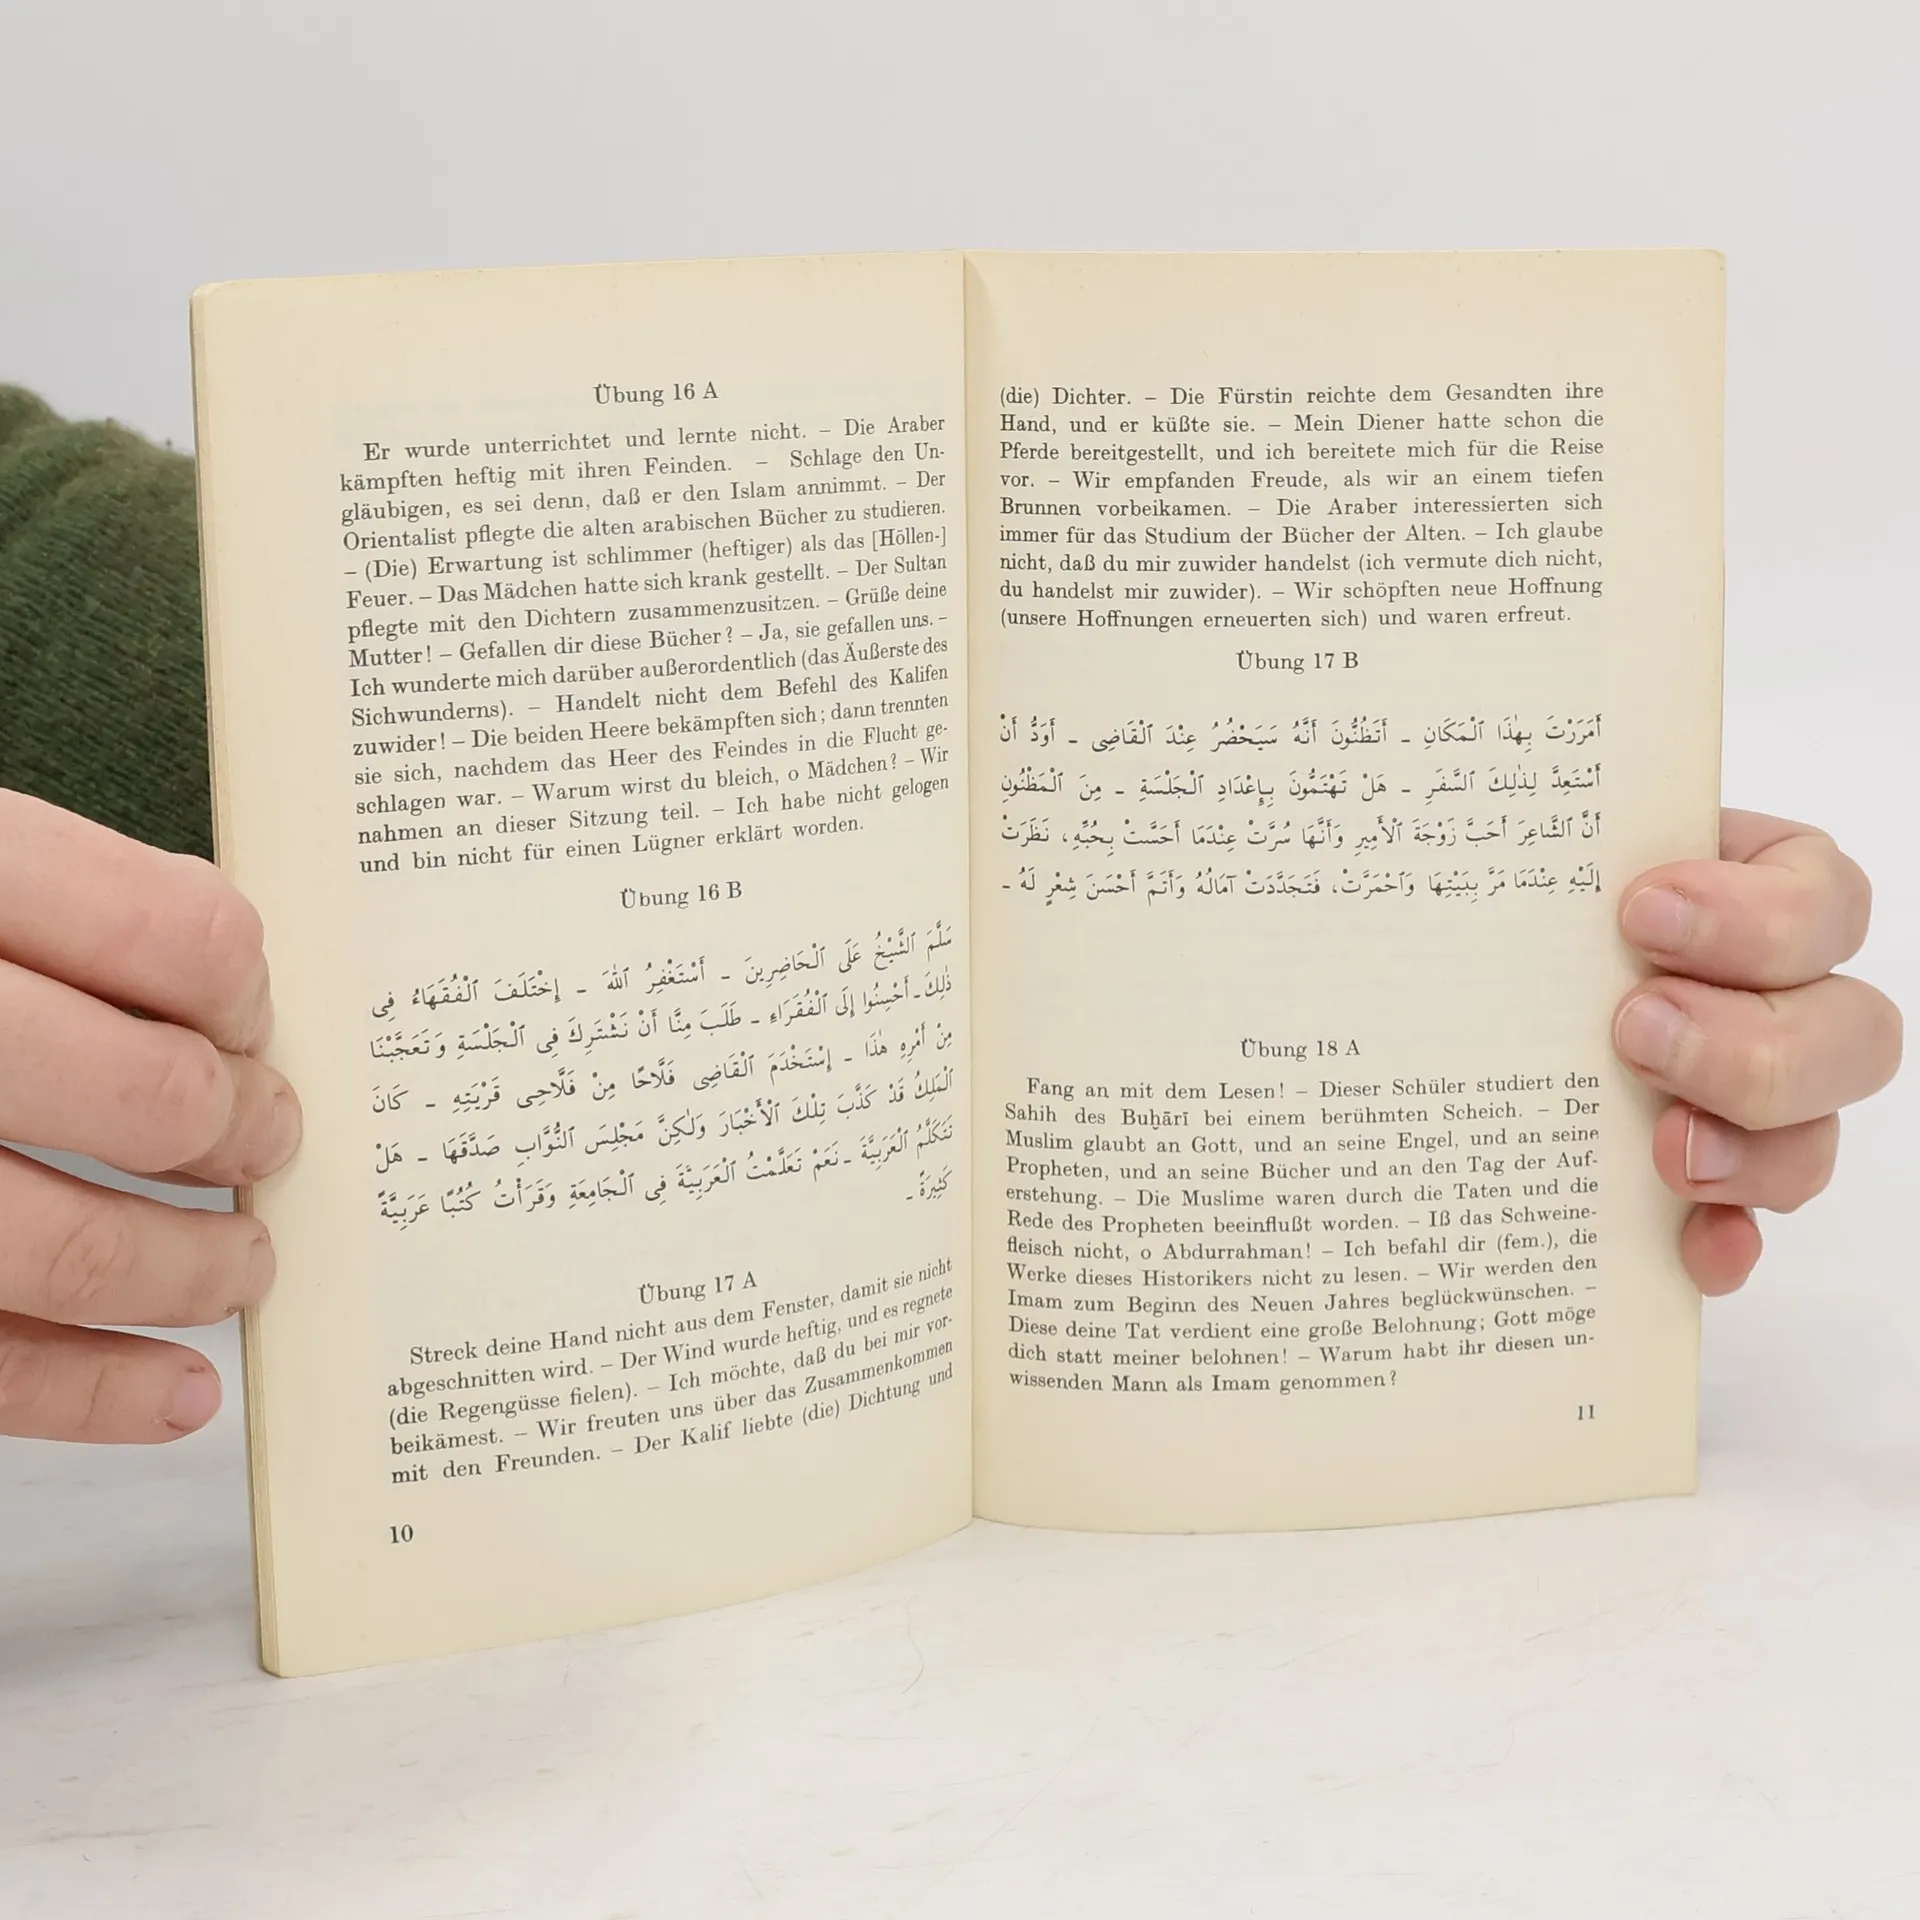 Übung 16 A
Er wurde unterrichtet und lernte nicht. – Die Araber
kämpften heftig mit ihren Feinden. – Schlage den Un-
gläubigen, es sei denn, daß er den Islam annimmt. – Der
Orientalist pflegte die alten arabischen Bücher zu studieren.
– (Die) Erwartung ist schlimmer (heftiger) als das [Höllen-]
Feuer. – Das Mädchen hatte sich krank gestellt. – Der Sultan
pflegte mit den Dichtern zusammenzusitzen. – Grüße deine
Mutter! – Gefallen dir diese Bücher? – Ja, sie gefallen uns. –
Ich wunderte mich darüber außerordentlich (das Äußerste des
Sichwunderns). – Handelt nicht dem Befehl des Kalifen
zuwider! – Die beiden Heere bekämpften sich; dann trennten
sie sich, nachdem das Heer des Feindes in die Flucht ge-
schlagen war. – Warum wirst du bleich, o Mädchen? – Wir
nahmen an dieser Sitzung teil. – Ich habe nicht gelogen
und bin nicht für einen Lügner erklärt worden.
Übung 16 B
سَلَّمَ ٱلشَّيْخُ عَلَى ٱلْحَاضِرِينَ ـ أَسْتَغْفِرُ ٱللّٰهَ ـ إِخْتَلَفَ ٱلْفُقَهَاءُ فِى
ذٰلِكَ ـ أَحْسِنُوا إِلَى ٱلْفُقَرَاءِ ـ طَلَبَ مِنَّا أَنْ نَشْتَرِكَ فِى ٱلْجَلْسَةِ وَتَعَجَّبْنَا
مِنْ أَمْرِهِ هٰذَا ـ إِسْتَخْدَمَ ٱلْقَاضِى فَلَّاحًا مِنْ فَلَّاحِى قَرْيَتِهِ ـ كَانَ
ٱلْمَلِكُ قَدْ كَذَّبَ تِلْكَ ٱلْأَخْبَارَ وَلٰكِنَّ مَجْلِسَ ٱلنُّوَّابِ صَدَّقَهَا ـ هَلْ
تَتَكَلَّمُ ٱلْعَرَبِيَّةَ ـ نَعَمْ تَعَلَّمْتُ ٱلْعَرَبِيَّةَ فِى ٱلْجَامِعَةِ وَقَرَأْتُ كُتُبًا عَرَبِيَّةً
كَثِيرَةً ـ
Übung 17 A
Streck deine Hand nicht aus dem Fenster, damit sie nicht
abgeschnitten wird. – Der Wind wurde heftig, und es regnete
(die Regengüsse fielen). – Ich möchte, daß du bei mir vor-
beikämest. – Wir freuten uns über das Zusammenkommen
mit den Freunden. – Der Kalif liebte (die) Dichtung und
10
(die) Dichter. – Die Fürstin reichte dem Gesandten ihre
Hand, und er küßte sie. – Mein Diener hatte schon die
Pferde bereitgestellt, und ich bereitete mich für die Reise
vor. – Wir empfanden Freude, als wir an einem tiefen
Brunnen vorbeikamen. – Die Araber interessierten sich
immer für das Studium der Bücher der Alten. – Ich glaube
nicht, daß du mir zuwider handelst (ich vermute dich nicht,
du handelst mir zuwider). – Wir schöpften neue Hoffnung
(unsere Hoffnungen erneuerten sich) und waren erfreut.
Übung 17 B
أَمَرَرْتَ بِهٰذَا ٱلْمَكَانِ ـ أَتَظُنُّونَ أَنَّهُ سَيَحْضُرُ عِنْدَ ٱلْقَاضِى ـ أَوَدُّ أَنْ
أَسْتَعِدَّ لِذٰلِكَ ٱلسَّفَرِ ـ هَلْ تَهْتَمُّونَ بِإِعْدَادِ ٱلْجَلْسَةِ ـ مِنَ ٱلْمَظْنُونِ
أَنَّ ٱلشَّاعِرَ أَحَبَّ زَوْجَةَ ٱلْأَمِيرِ وَأَنَّهَا سُرَّتْ عِنْدَمَا أَحَسَّتْ بِحُبِّهِ، نَظَرَتْ
إِلَيْهِ عِنْدَمَا مَرَّ بِبَيْتِهَا وَٱحْمَرَّتْ، فَتَجَدَّدَتْ آمَالُهُ وَأَتَمَّ أَحْسَنَ شِعْرٍ لَهُ ـ
Übung 18 A
Fang an mit dem Lesen! – Dieser Schüler studiert den
Sahih des Buḫārī bei einem berühmten Scheich. – Der
Muslim glaubt an Gott, und an seine Engel, und an seine
Propheten, und an seine Bücher und an den Tag der Auf-
erstehung. – Die Muslime waren durch die Taten und die
Rede des Propheten beeinflußt worden. – Iß das Schweine-
fleisch nicht, o Abdurrahman! – Ich befahl dir (fem.), die
Werke dieses Historikers nicht zu lesen. – Wir werden den
Imam zum Beginn des Neuen Jahres beglückwünschen. –
Diese deine Tat verdient eine große Belohnung; Gott möge
dich statt meiner belohnen! – Warum habt ihr diesen un-
wissenden Mann als Imam genommen?
11